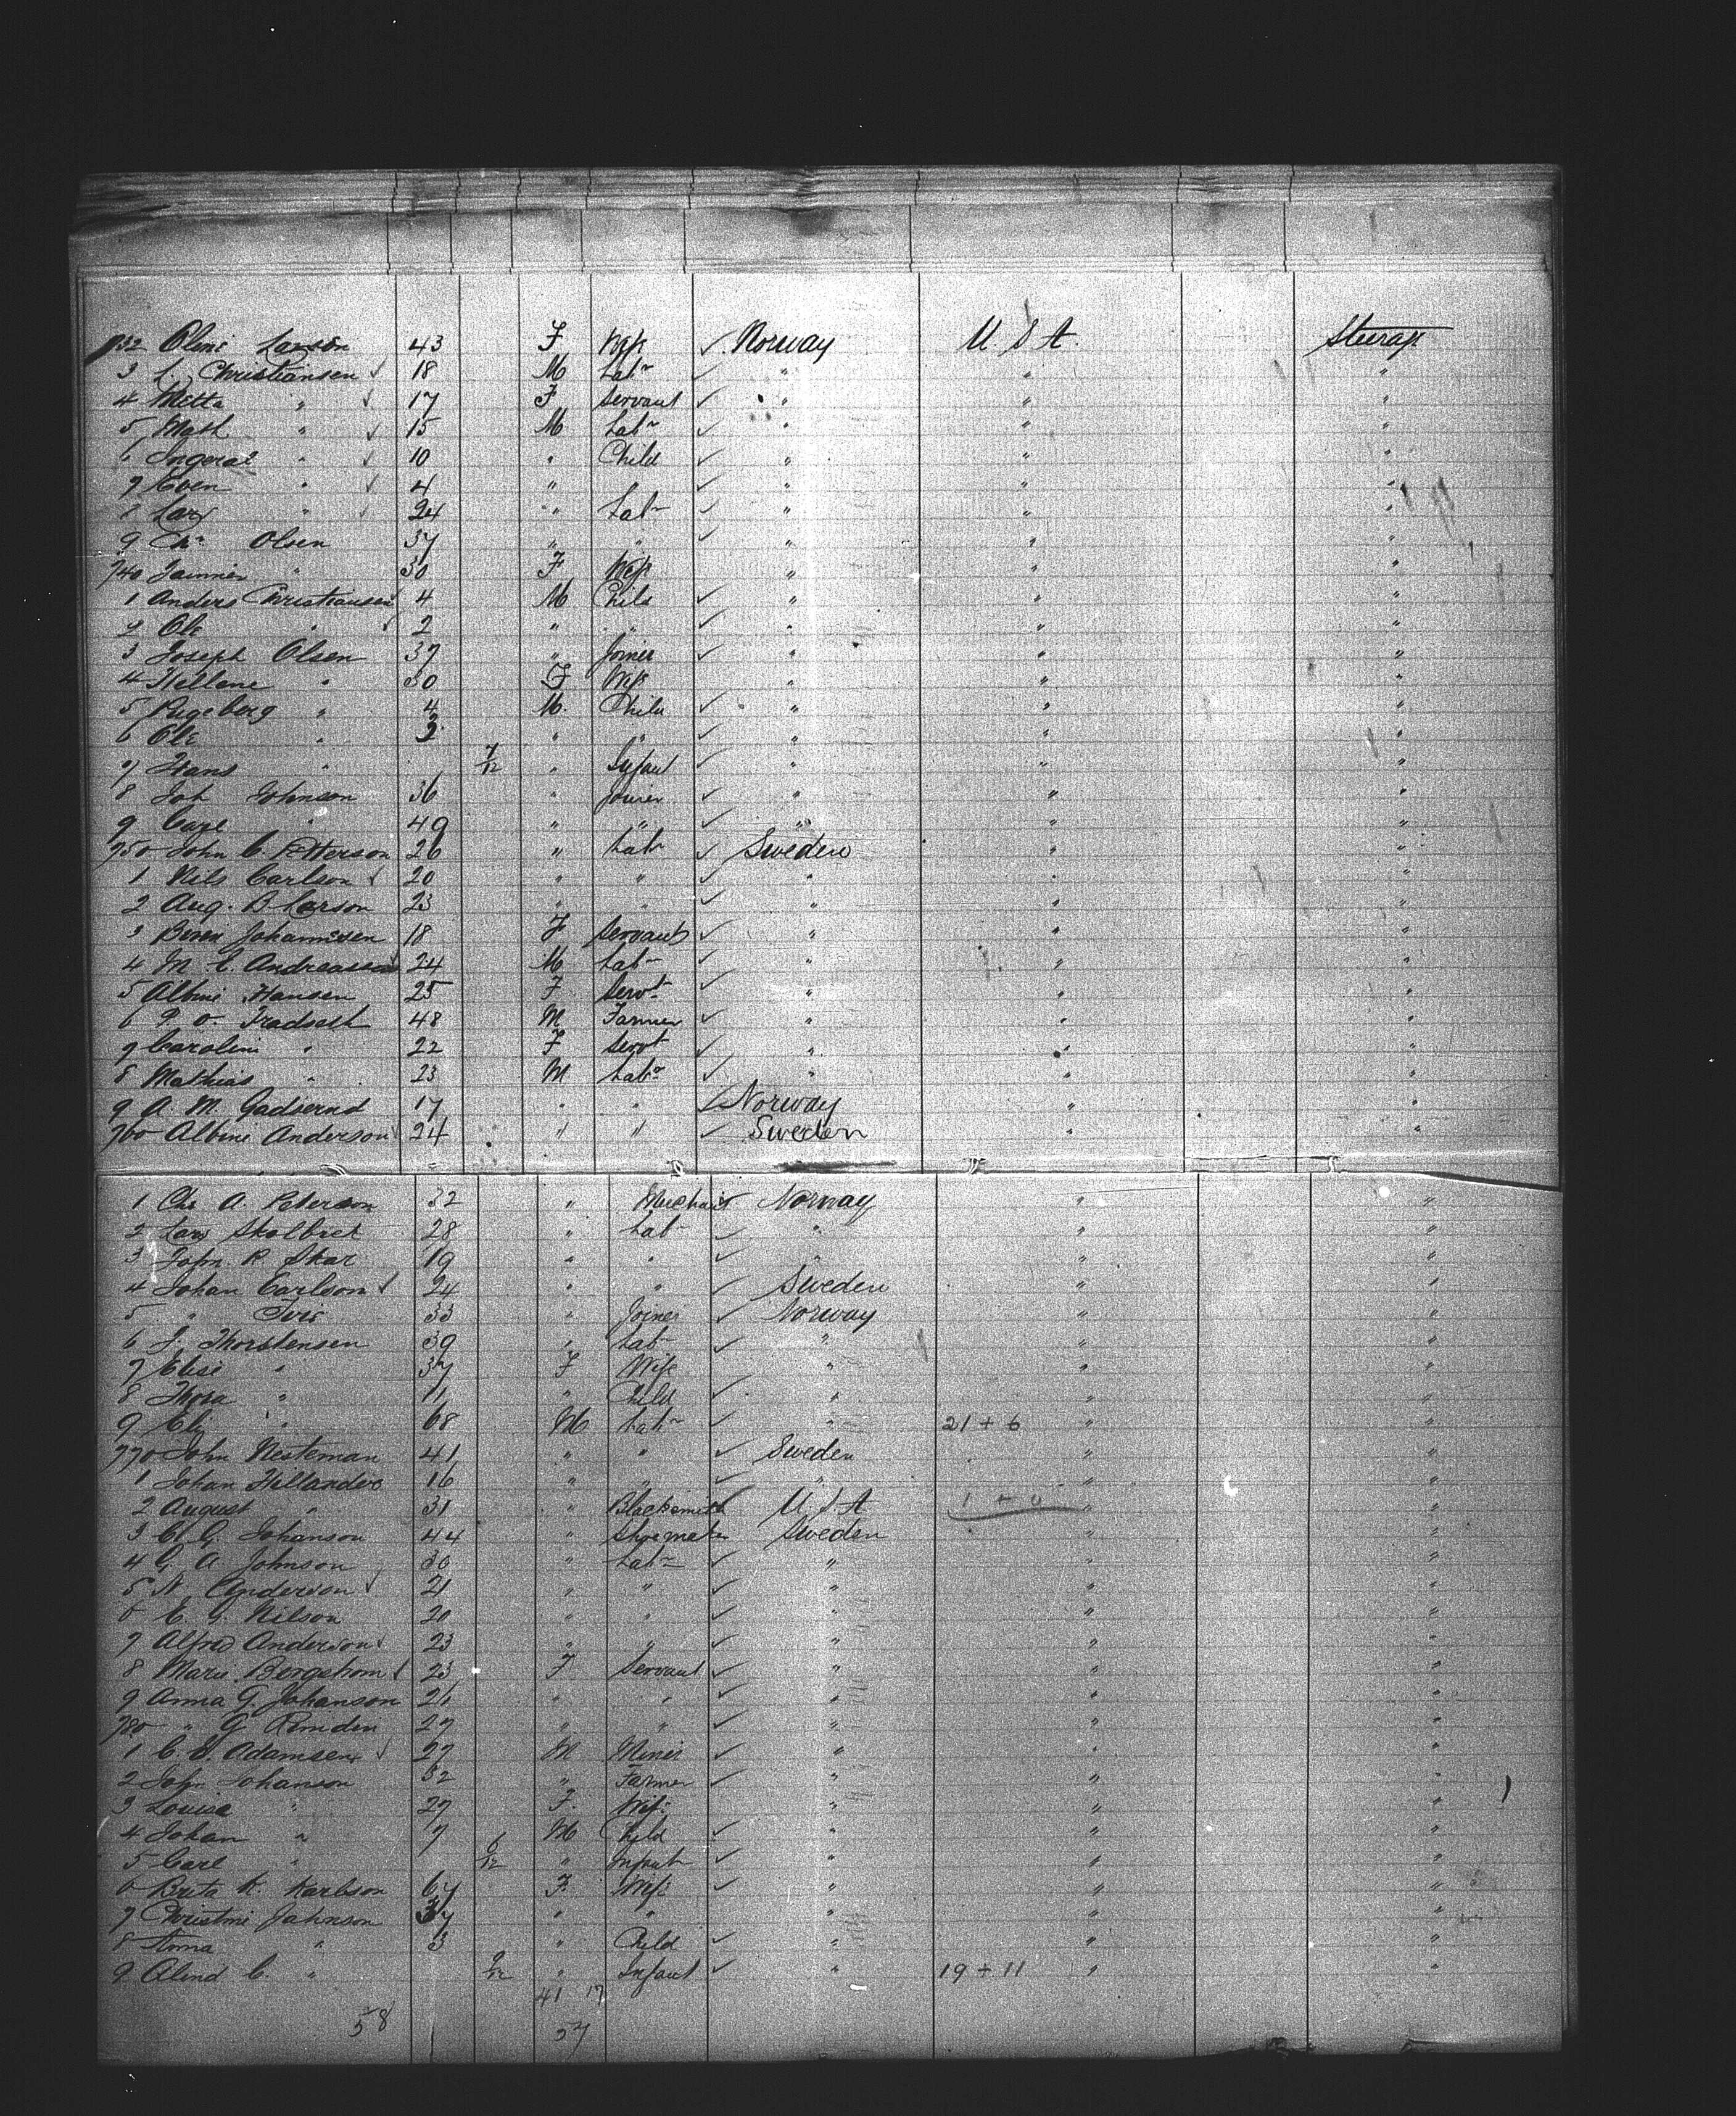 732 Oline Larson 43 F Wife Norway U.S.A. Steerage
3 L. Christiansen 18 M Labr " " "
4 Metta " 17 F Servant " " "
5 Math " 15 M Labr " " "
6 Ingeral " 10 " Child " " "
7 Even " 4 " " " "
8 Lars " 24 " Labr " " "
9 Chr Olsen 37 " " " " "
740 Jannier " 30 F Wife " " "
1 Anders Christiansen 4 M Child " " "
2 Ole " 2 " " " " "
3 Joseph Olsen 37 " Joiner " " "
4 Hellene " 30 F Wife " " "
5 Ingeberg " 4 M. Child " " "
6 Ole " 3 " " " " "
7 Hans " 7/12 " Infant " " "
8 Joh Johnson 36 " Joiner " " "
9 Carl " 49 " " " " "
750 John C Petterson 26 " Labr Sweden " "
1 Nils Carlson 20 " " " " "
2 Aug. B Larson 23 " " " " "
3 Johannesen 18 F Servant " " "
4 M. E. Andreassen 24 M Labr " " "
5 Albine Hansen 25 F. Servt " " "
6 48 M Farmer " " "
7 Caroline " 22 F Servt " " "
8 Mathias " 23 M Labr " " "
9 A. M. Gadsernd 17 " " Norway " "
760 Albine Anderson 24 " " Sweden " "
1 Chr A. Peterson 32 " Merchant Norway " "
2 Lars Skolbret 28 " Labr " " "
3 John R Skar 19 " " " " "
4 Johan Carlson 24 " " Sweden " "
5 " Ivis 33 " Joiner Norway " "
6 J. Thorstensen 39 " Labr " " "
7 Elise " 37 F Wife " " "
8 Thora " 11 " Child " " "
9 " 68 M Labr " 21 + 6 " "
770 John Westeman 41 " " Sweden " "
1 Johan Hillanders 16 " " " " "
2 August " 31 " Blacksmith U.S.A 1 + 0 " "
3 C. G. Johanson 44 " Shoemaker Sweden " "
4 G. A Johnson 30 " Labr " " "
5 N. Anderson 21 " " " " "
6 E. G. Nilson 20 " " " " "
7 Alfred Anderson 23 " " " " "
8 Marie Bergstrom 23 F Servant " " "
9 Anna G. Johanson 26 " " " " "
780 " G Romdin 27 " " " " "
1 C. E. Adamsen 27 M Miner " " "
2 John Johanson 32 " Farmer " " "
3 Louisa " 27 F. Wife " " "
4 Johan " 7 M Child " " "
5 Carl " 6/12 " Infant " " "
6 Brita K. Karlson 67 F. Wife " " "
7 Christine Johnson 37 " " " " "
8 " 3 " Child " " "
9 C. " 9/12 " Infant " 19 + 11 " "
41 17
58 57